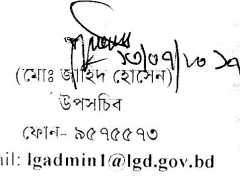 ২৩/০৭/২০১৭
(মোঃ জাহিদ হোসেন)
উপসচিব
ফোন- ৯৫৭৫৫৭৩
ail: lgadmin1@lgd.gov.bd